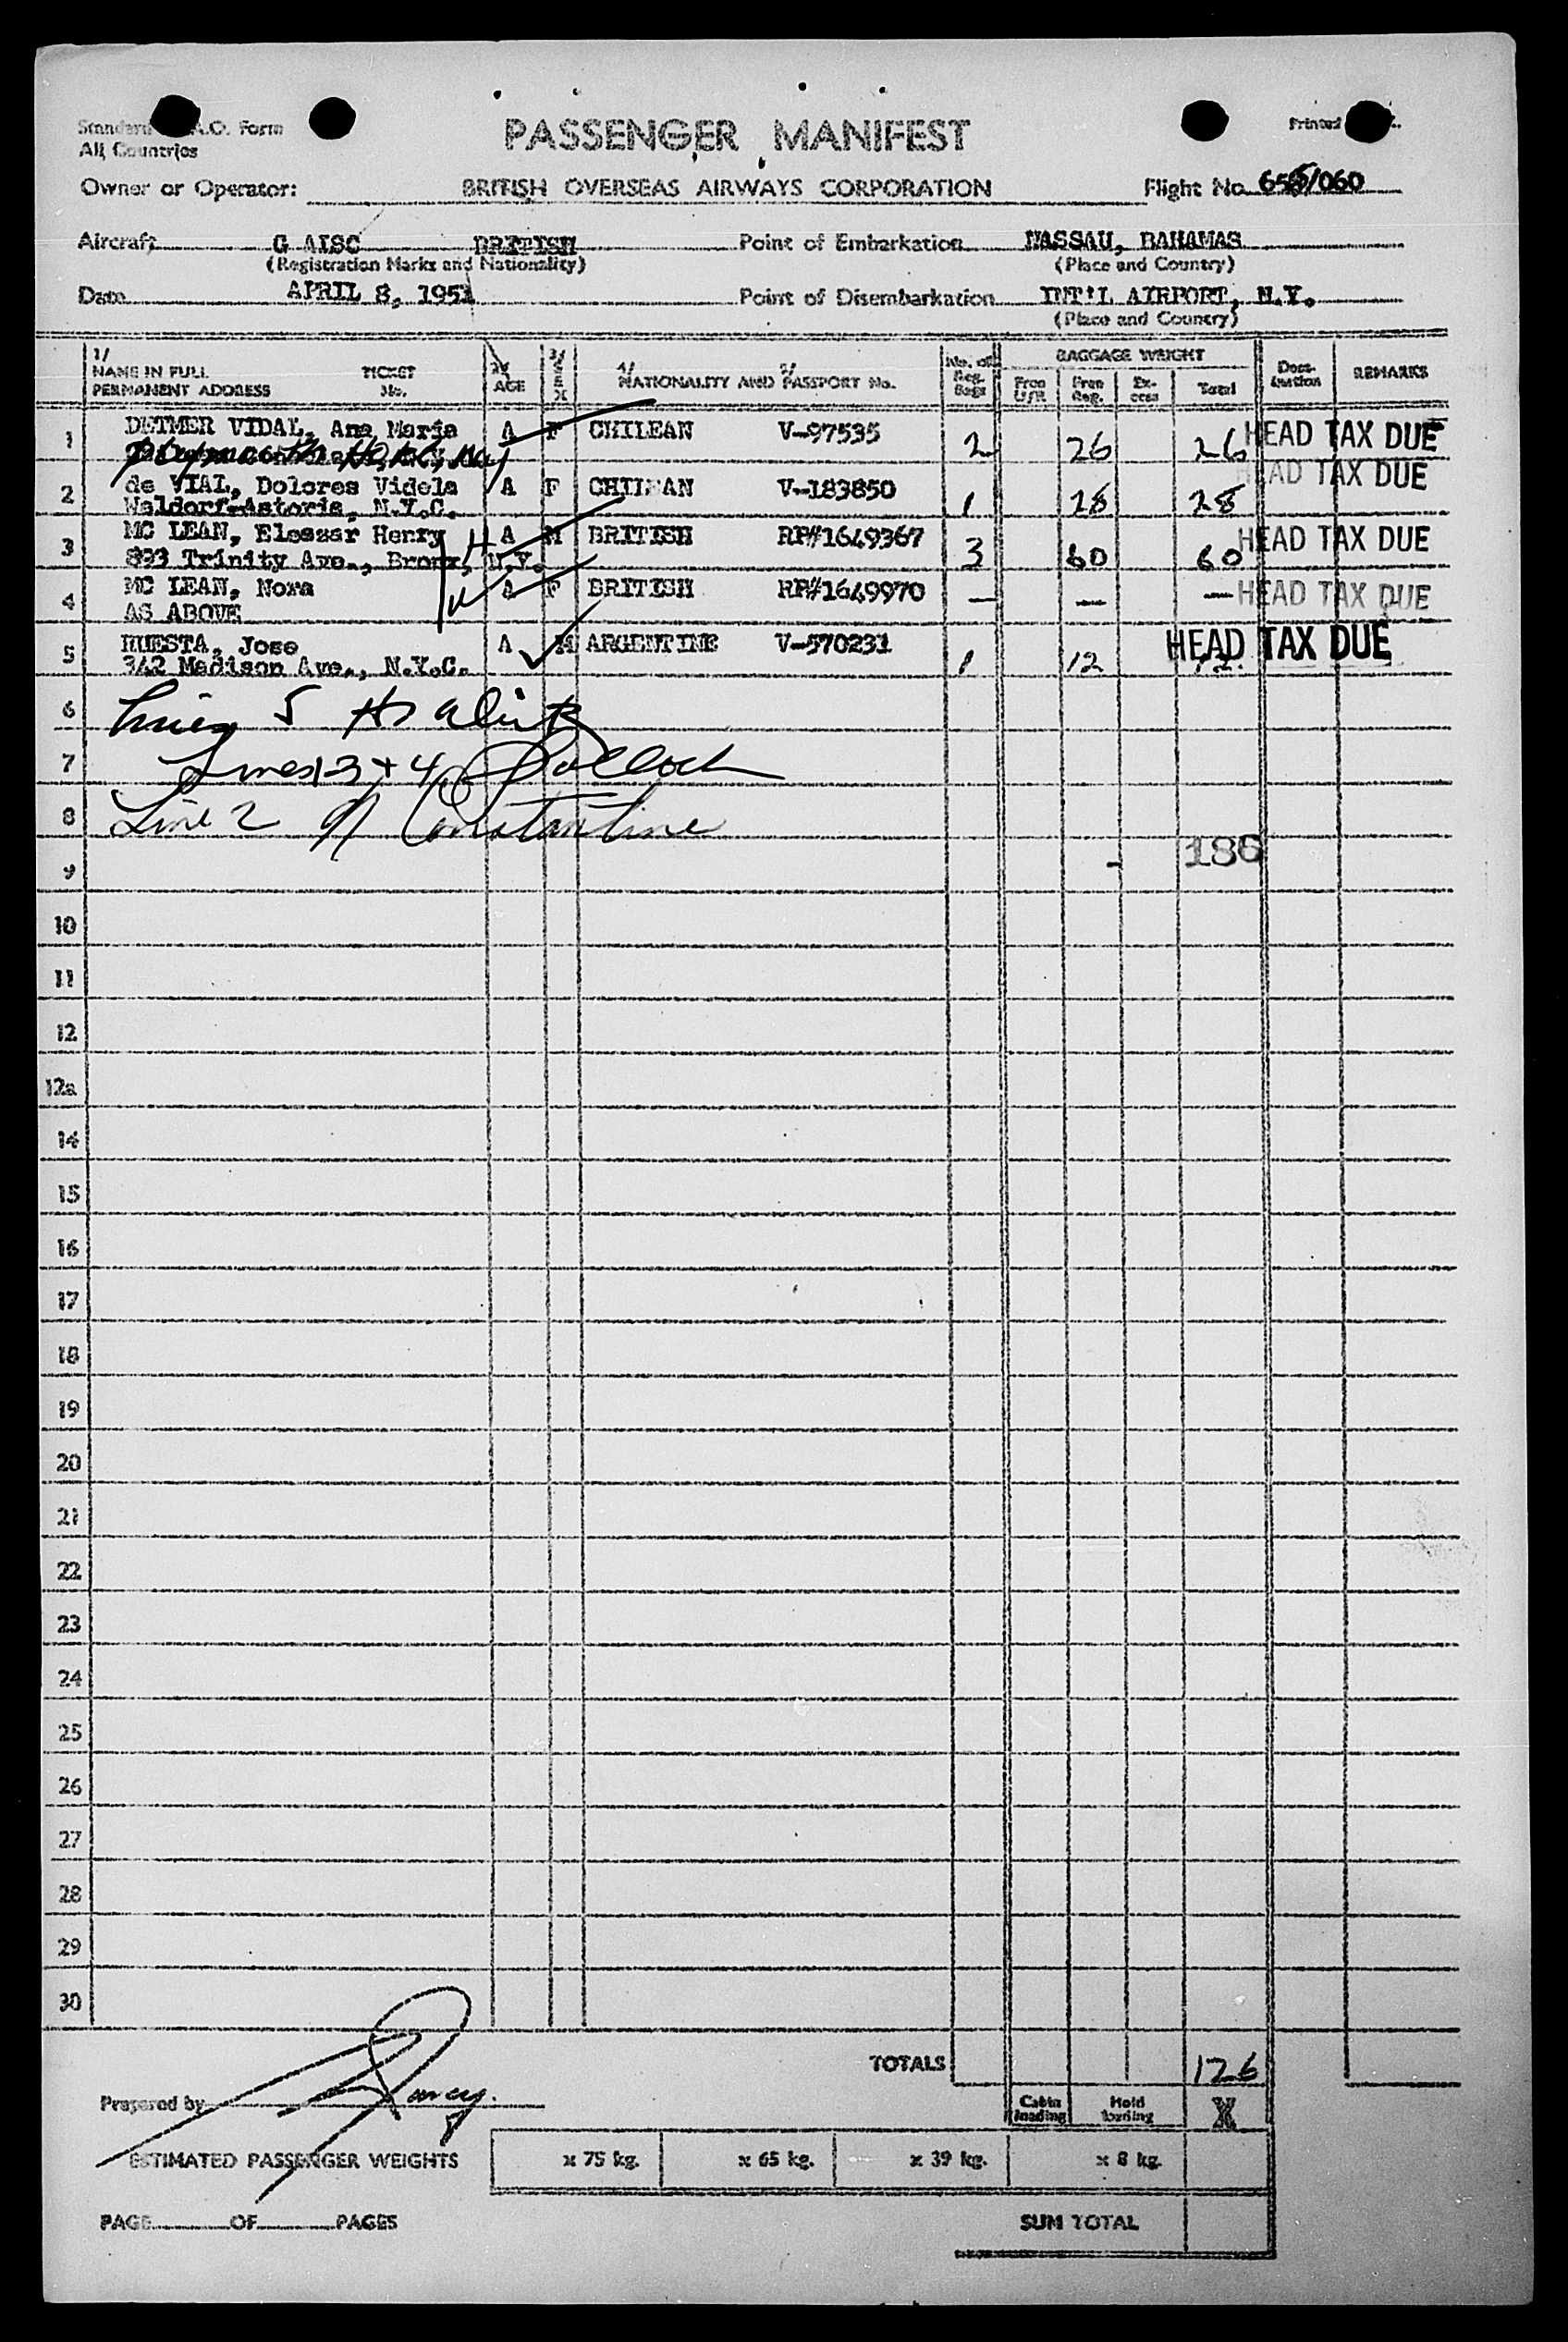 A.O. Form
All Countries
PASSENGER MANIFEST
Printed
Owner or Operator: BRITISH OVERSEAS AIRWAYS CORPORATION Flight No. /060
Aircraft G AISC BRITISH Point of Embarkation NASSAU, BAHAMAS
(Registration Marks and Nationality) (Place and Country)
Date APRIL 8, 1951 Point of Disembarkation INT'L AIRPORT, N.Y.
(Place and Country)
1/ NAME IN FULL TICKET 2/ AGE 3/ SEX 4/ NATIONALITY AND 5/ PASSPORT No. No. of Reg. Bags BAGGAGE WEIGHT Destination REMARKS
PERMANENT ADDRESS No. Free Free Reg. Excess Total
1 DETMER VIDAL, Ana Maria A F CHILEAN V-97535 2 26 26 HEAD TAX DUE
2 de VIAL, Dolores Videla A F CHILEAN V-183850 1 28 28 HEAD TAX DUE
Waldorf-Astoria, N.Y.C.
3 MC LEAN, Eleazar Henry A M BRITISH RP#1649367 3 60 60 HEAD TAX DUE
893 Trinity Ave., Bronx, N.Y.
4 MC LEAN, Nora A F BRITISH RP#1649970 — — — HEAD TAX DUE
AS ABOVE
5 HUESTA, Jose A M ARGENTINE V-570231 1 12 12 HEAD TAX DUE
342 Madison Ave., N.Y.C.
6 5
7 Lines 1-3+4 Pollock
8 Line 2 Constantine
9 186
10
11
12
12a
14
15
16
17
18
19
20
21
22
23
24
25
26
27
28
29
30
TOTALS 126
Prepared by
Cabin loading Hold loading X
ESTIMATED PASSENGER WEIGHTS x 75 kg. x 65 kg. x 39 kg. x 8 kg.
PAGE OF PAGES SUM TOTAL